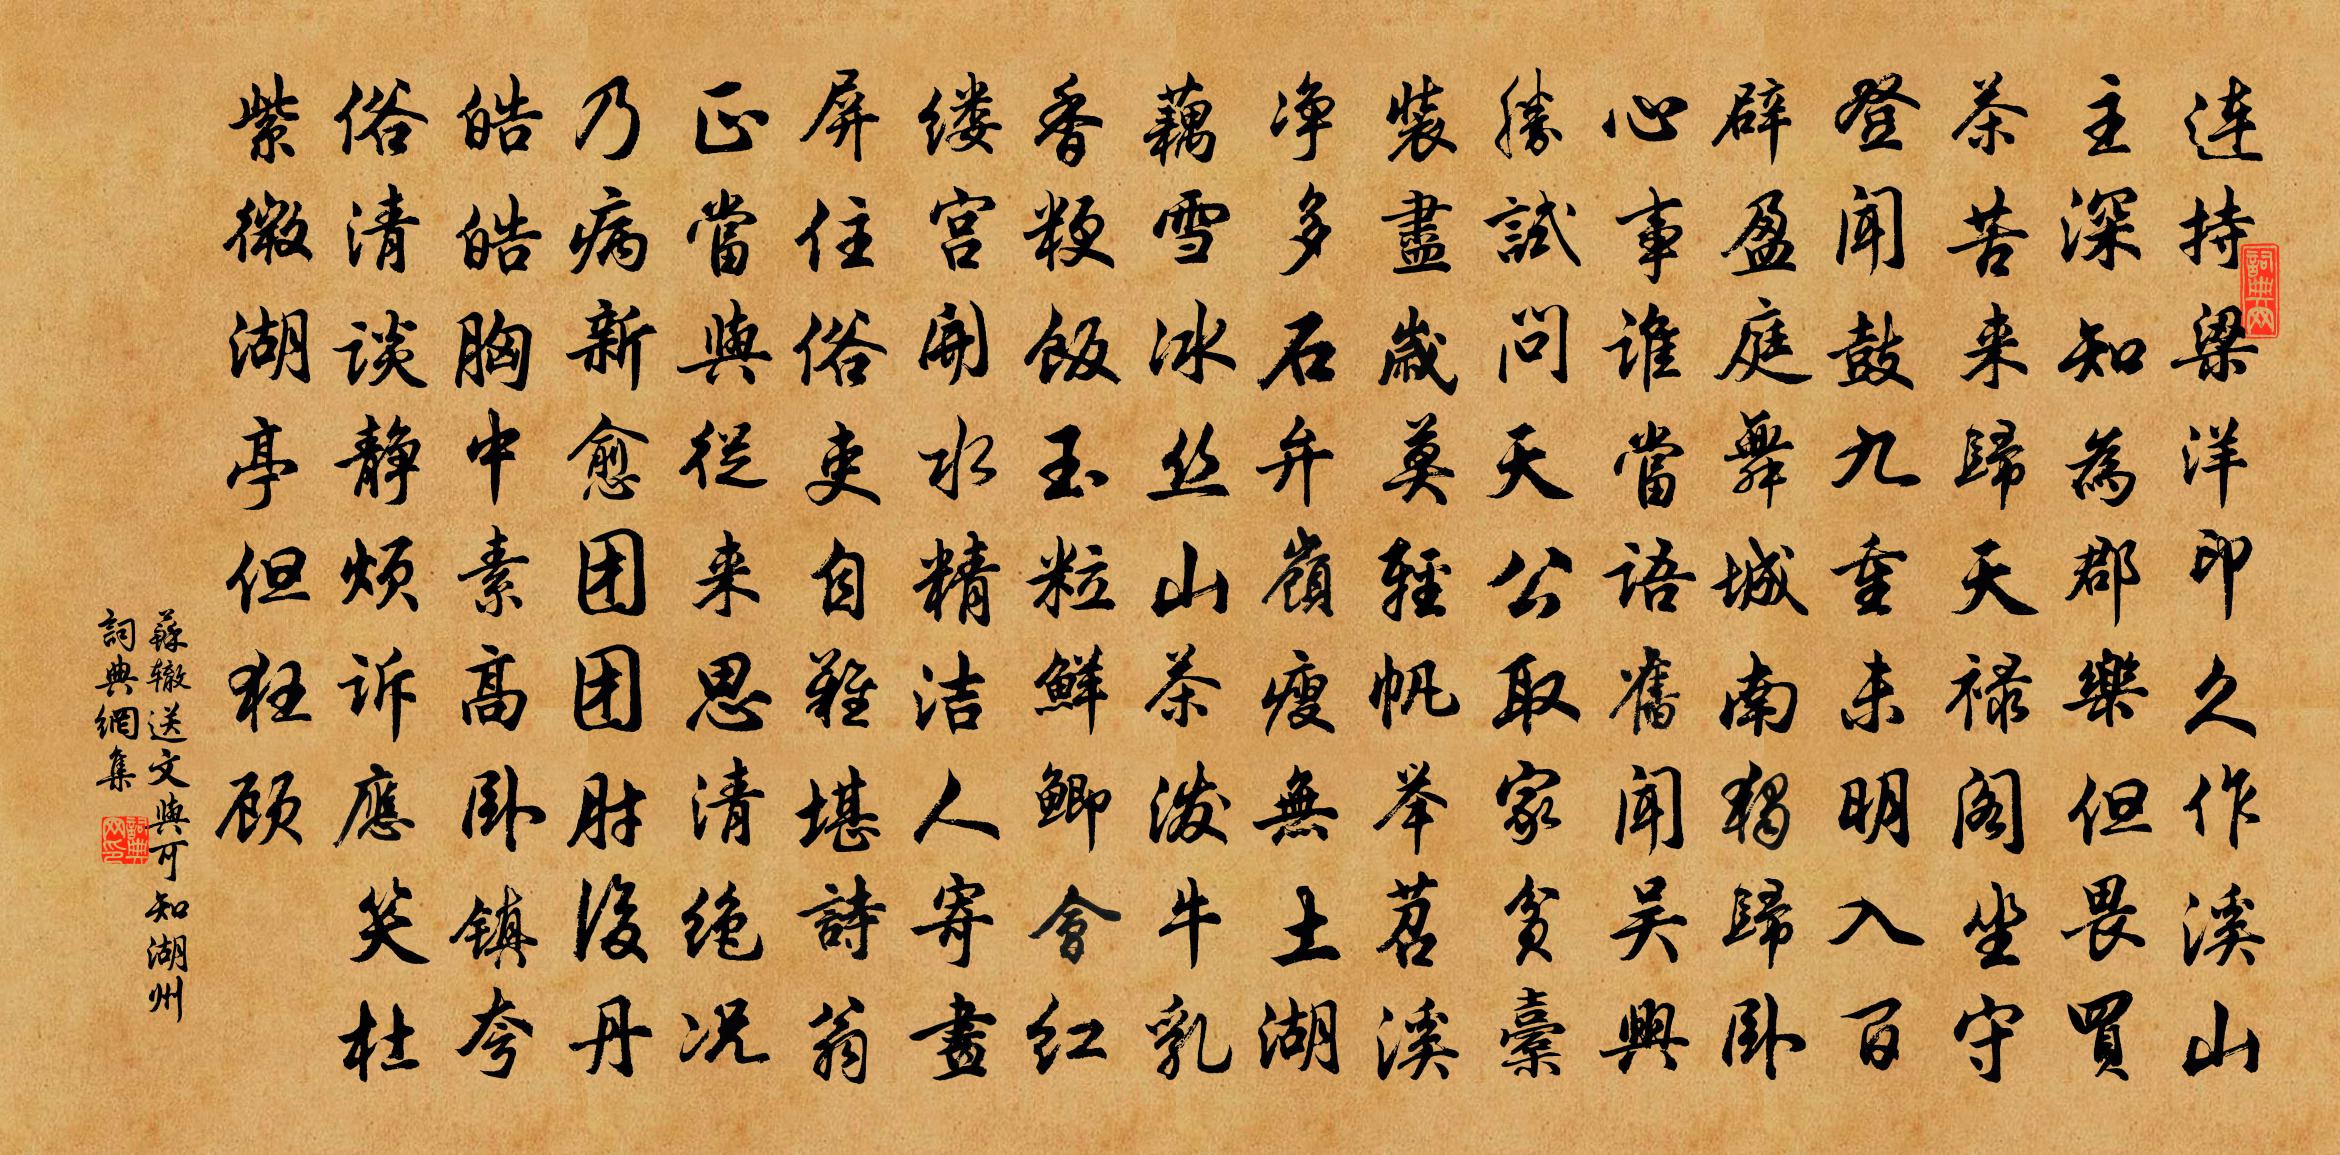 连持梁洋印久作溪山
主深知為郡樂但畏買
茶苦来歸天禄阁坐守
登闻鼓九重未明入百
辟盈庭舞城南独歸卧
心事谁當语舊闻吴興
勝試问天公取家贫橐
裝盡歲莫轻帆举苕溪
净多石弁嶺瘦無土湖
藕雪冰丝山茶泼牛乳
香粳饭玉粒鲜鲫食红
缕宫開水精洁人寄畫
屏住俗吏自難堪詩翁
正當與從来思清绝况
乃病新愈团团肘後丹
皓皓胸中素高卧镇夸
俗清谈静烦诉應笑杜
紫微湖亭但狂顾
蘇辙送文與可知湖州
詞典網集
詞典网
詞典网印